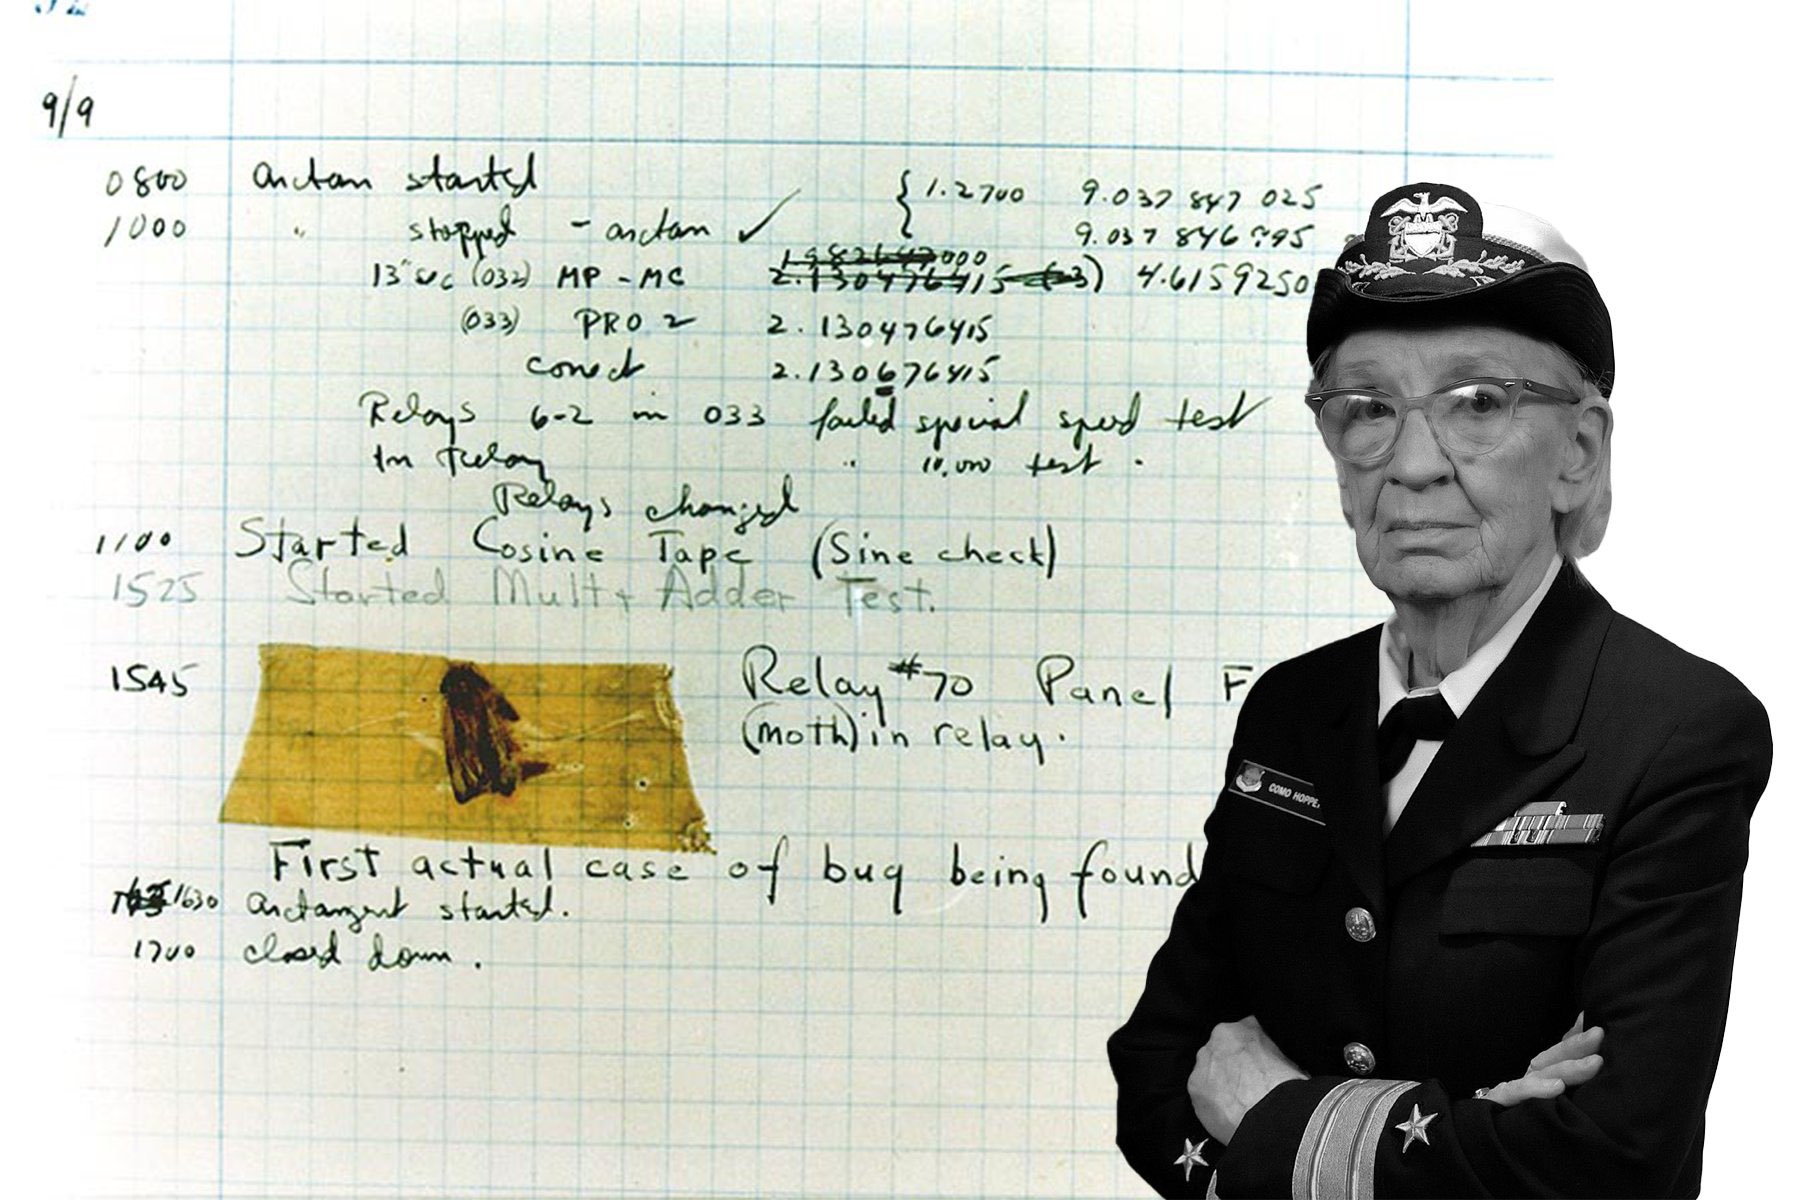 9/9
0800 arctan started { 1.2700 9.037 847 025
1000 " stopped - arctan ✓ 9.037 846 995
13"uc (032) MP - MC 2.130476415 (-3) 4.6159250
(033) PRO 2 2.130476415
conect 2.130676415
Relays 6-2 in 033 failed special speed test
In Relay " 10,000 test .
Relays changed
1100 Started Cosine Tape (Sine check)
1525 Started Mult + Adder Test.
1545 Relay #70 Panel F
(moth) in relay.
First actual case of bug being found
1630 arctangent started.
1700 closed down.
COMO HOPPE